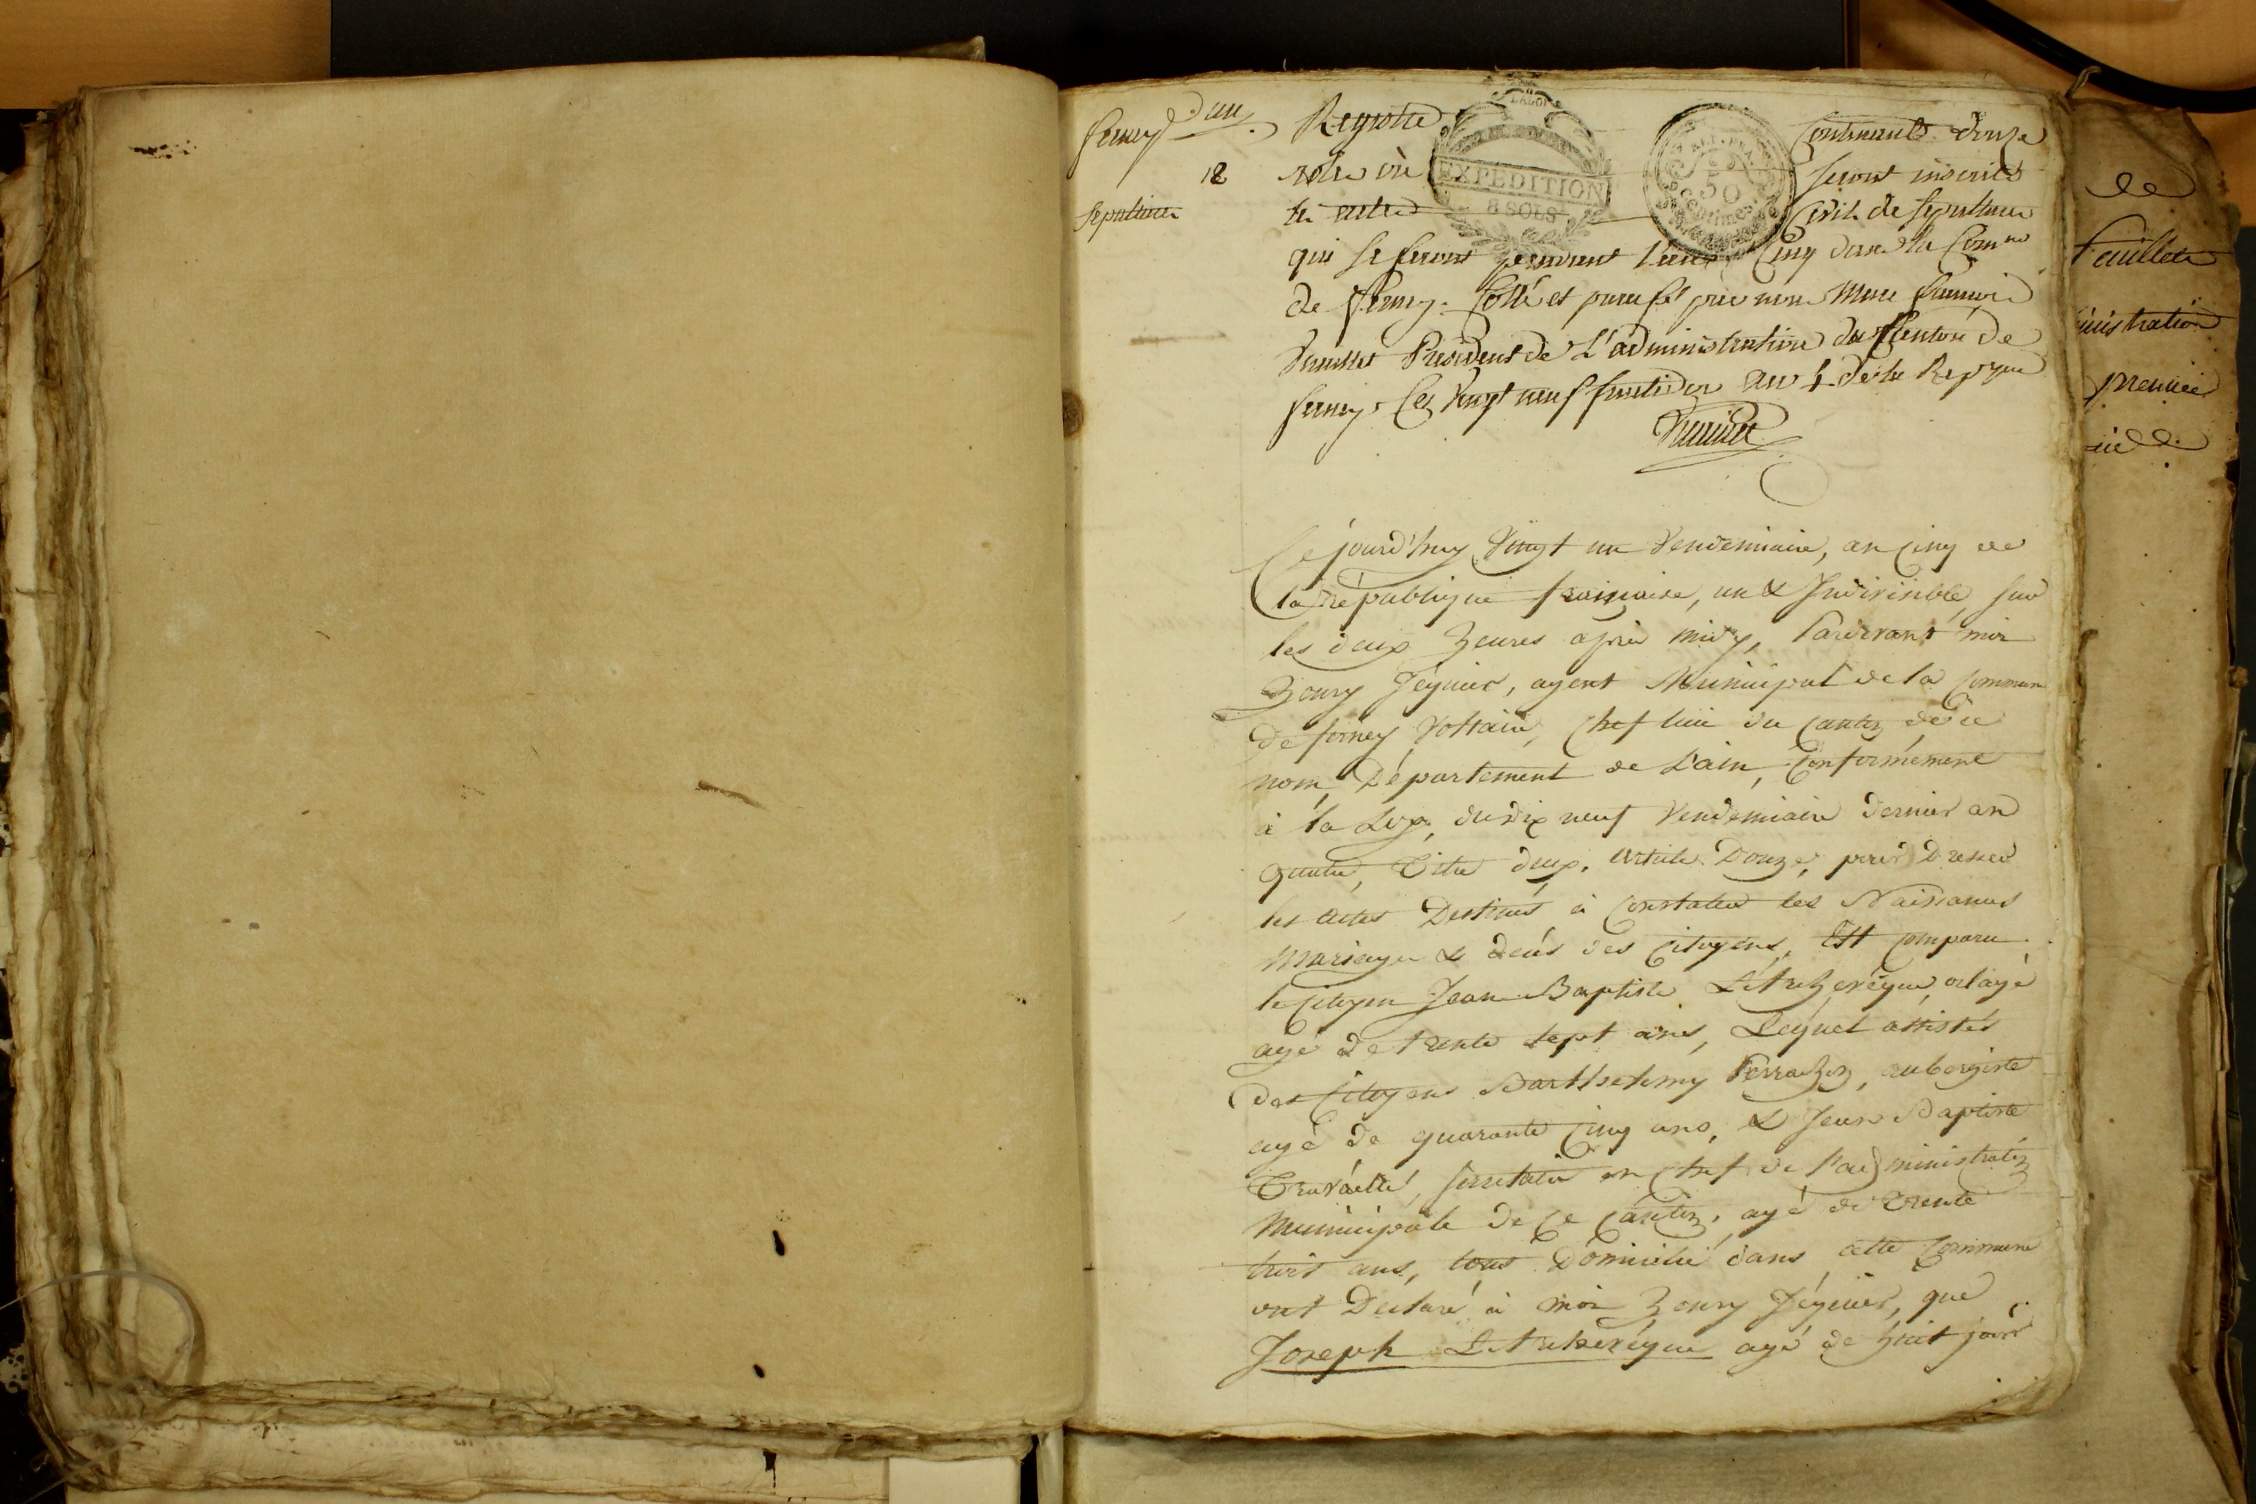 ferney d'un Registre Contenant douze
12 rôles où seront inscrits
sepultures les actes Civils de sepultures
EXPEDITION
8 SOLS
50
centimes
qui se feront pendant l'an Cinq dans la Comne
de ferney. Cotté et paraffé par nous Marc francois
President de L'administration du Canton de
ferney. Ce Vingt neuf fructidor an 4 de la Repque
Cejourd'huy Vingt un Vendemiaire, an Cinq de
la République française, un & Indivisible, sur
les deux heures après midy, Pardevant moi
agent Municipal de la Commune
de ferney Voltaire, Chef lieu du Canton de ce
nom, Département de L'ain, Conformément
à la Loy, du dix neuf Vendemiaire dernier an
quatre, Titre deux, article Douze, pour Dresser
les actes Destinés à Constater les Naissances
Mariages & décés des Citoyens, Est Comparu
le Citoyen Jean Baptiste
agé de trente sept ans, Lequel assistés
des Citoyens Barthelemy aubergiste
agé de quarante Cinq ans, & Jean Baptiste
secretaire en Chef de l'administration
Municipale de Ce Canton, agé de trente
trois ans, tous Domicilié dans cette Commune
ont Declaré à moi que
Joseph agé de huit jours
de
feuillets
premiere